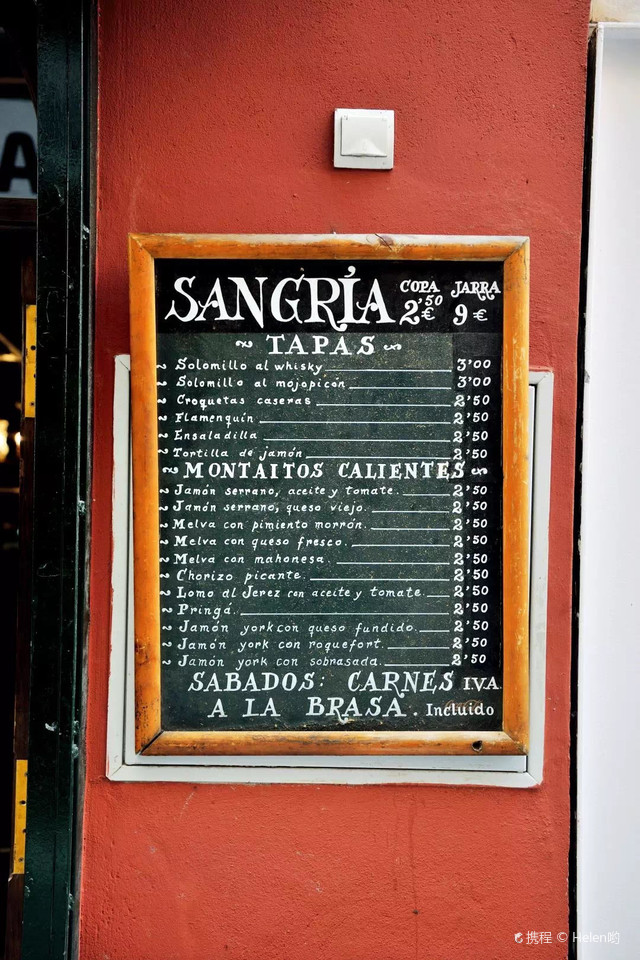 A
SANGRÍA COPA JARRA
2'50€ 9€
TAPAS
Solomillo al whisky 3'00
Solomillo al mojopicón 3'00
Croquetas caseras 2'50
Flamenquín 2'50
Ensaladilla 2'50
Tortilla de jamón 2'50
MONTAITOS CALIENTES
Jamón serrano, aceite y tomate. 2'50
Jamón serrano, queso viejo. 2'50
Melva con pimiento morrón. 2'50
Melva con queso fresco. 2'50
Melva con mahonesa. 2'50
Chorizo picante. 2'50
Lomo al Jerez con aceite y tomate. 2'50
Pringá. 2'50
Jamón york con queso fundido. 2'50
Jamón york con roquefort. 2'50
Jamón york con sobrasada. 2'50
SABADOS: CARNES I.V.A.
A LA BRASA. Incluido
携程 © Helen哟